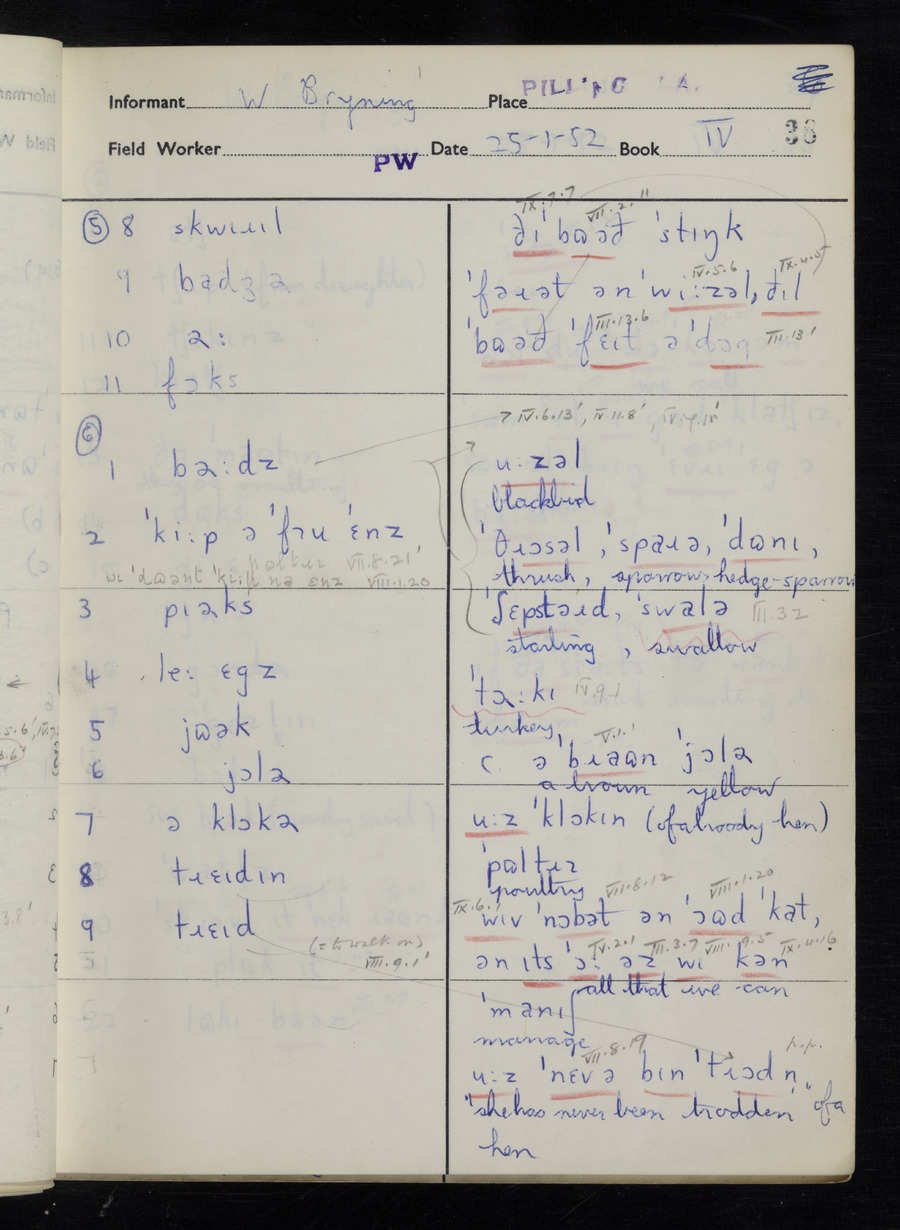 Informant W Bryning Place PILLING LA.
38
Field Worker PW Date 25-1-52 Book IV
⑤ 8 skwıɹıl
9 badʒə
10 ɜ:
11 fɔks
⑥
1 bɜ:dz
2 'ki:p ə 'fɪu 'ɛnz
wi 'dɷənt VII.8.21'
VIII.1.20
3 pɹaks
4 le: ɛgz
5 jɷək
6 jɔlə
7 ə klɔkə
8 tɹɛıdın
9 tɹɛıd
(= to walk on)
VIII.9.1'
IX.7.7 VII.2.11
ðı bɷəð 'stıŋk
IV.5.6 IX.4.5
'fəɹət ən 'wi:zəl, ðıl
III.13.6
'bɷəð 'fɛıt ə 'dɔg III.13'
? IV.6.13', IV.11.8',
?
u:zəl
blackbird
'θɹɔsəl, 'spaɹə, 'dɷnı,
thrush, sparrow, hedge-sparrow
'ʃɛpstəɹd, 'swalə III.32
starling, swallow
'tɜ:kı IV.9.1
turkey
V.1.'
c. ə 'bɹaɷn 'jɔlə
a brown yellow
u:z 'klɔkın (of a broody hen)
'pɷltɹı
poultry VII.8.12 VIII.1.20
IX.6.1
wiv 'nɔbət ən 'ɔɷd 'kɜt,
IV.2.1 III.3.7 VIII.9.5 IX.4.16
ən ıts 'ɔ: əz wi kən
all that we can
'manıʃ
manage
VII.8.19 p.p.
u:z 'nɛvə bın 'tɹɔdn
"she has never been trodden" of a
hen